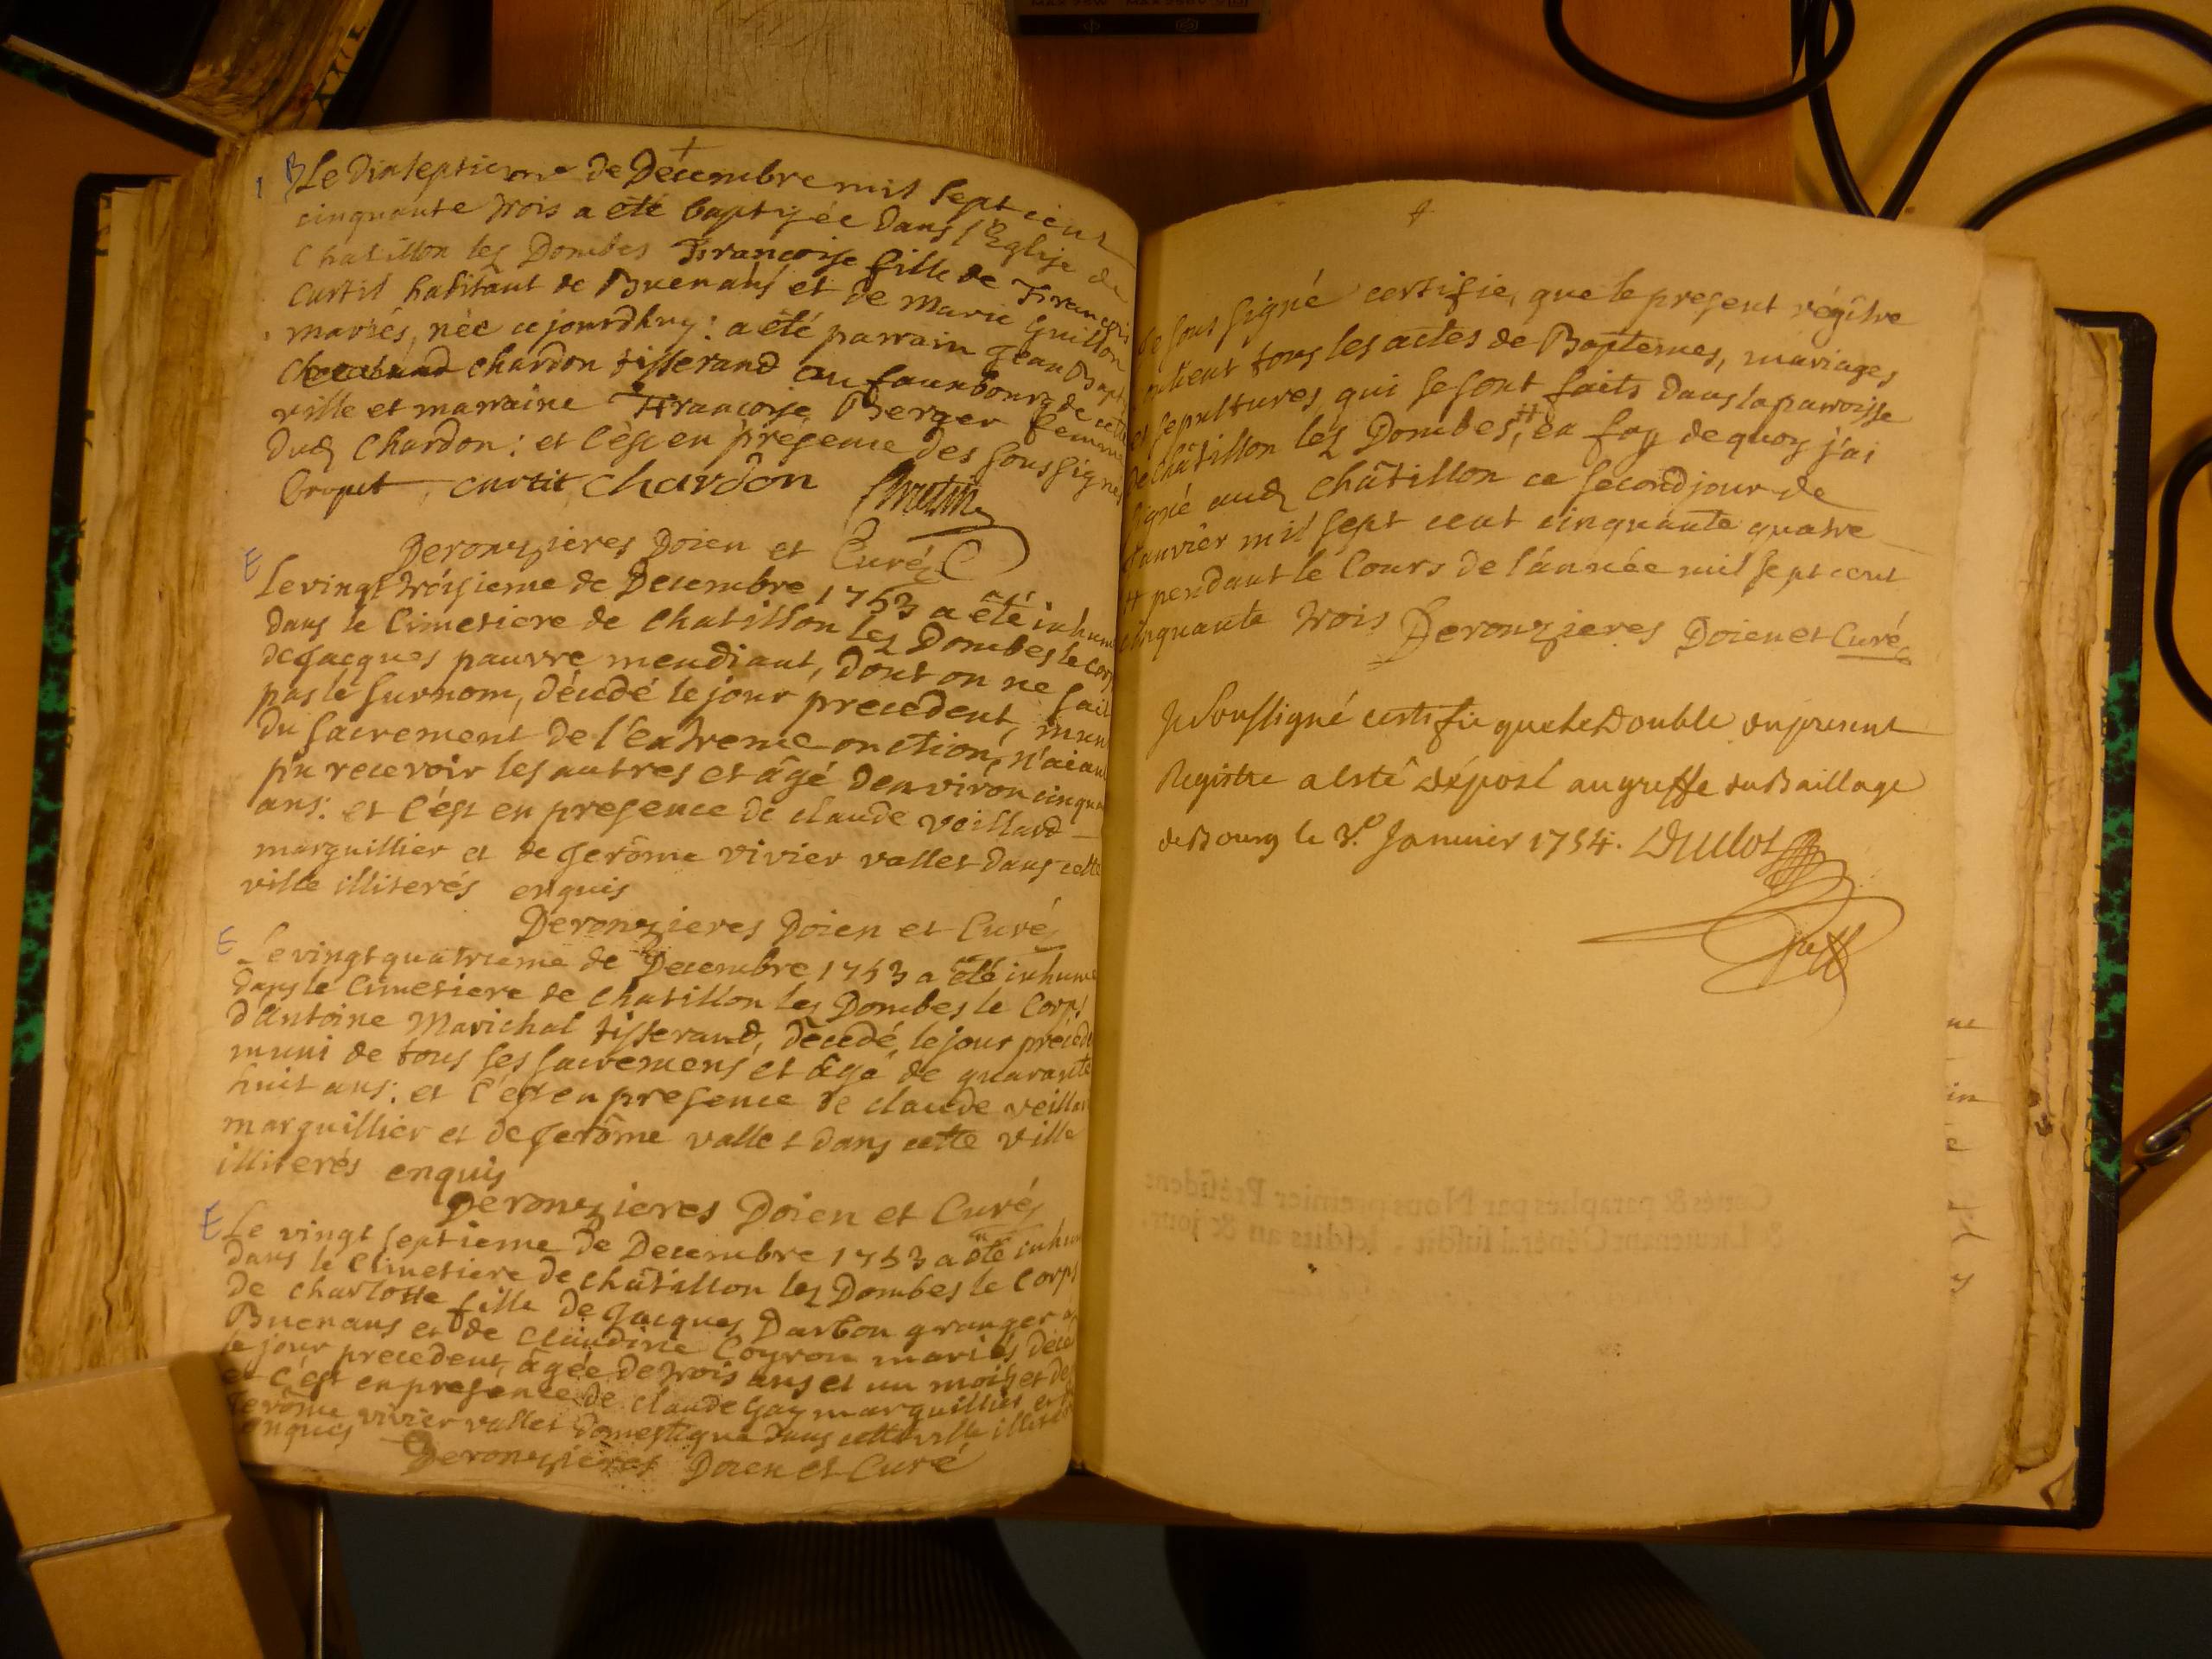 Le dixseptieme de Décembre mil sept cent
cinquante trois a été baptisée dans l'Eglise de
Chatillon les Dombes Françoise fille de François
Curtil habitant de Buenans et de Marie Guillon
mariés, née cejourdhuy: a été parrain Jean Bapt
chardon tisserand au fauxbourg de cette
ville et marraine Françoise Berger femme
dud chardon: et c'est en présence des soussignés
curtit chardon
Derouzieres Doien et Curé
E
Le vingt troisieme de Decembre 1753 a été inhumé
dans le Cimetiere de chatillon les Dombes le corp
de Jacques pauvre mendiant, dont on ne sait
pas le surnom, décédé le jour precedent, muni
du sacrement de l'extreme-onction, n'aiant
pu recevoir les autres et âgé d'environ cinqua
ans: et c'est en presence de claude veillard
marguillier et de Jerôme vivier vallet dans cette
ville illiterés enquis
Derouzieres Doien et Curé
E
Le vingt quatrieme de Decembre 1753 a été inhumé
dans le Cimetiere de chatillon les Dombes le Corps
d'Antoine Marichal tisserand, décedé le jour précéde
muni de tous ses sacremens et âgé de quarante
huit ans: et c'est en presence de claude veillar
marguillier et de Jerôme vallet dans cette ville
illiterés enquis
Derouzieres Doien et Curé
E
Le vingt septieme de Decembre 1753 a été inhum
dans le Cimetiere de châtillon les Dombes le Corps
de charlotte fille de Jacques Darbon granger a
Buenans et de claudine Coyron mariés décé
le jour precedent, âgée de trois ans et un mois et de
et c'est en presence de claude Gay marguillier et
Jerôme vivier vallet domestique dans cette ville illiter
enquis
Derouzieres Doien et Curé
Je sous signé certifie, que le present régître
contient tous les actes de Baptemes, mariages
et sepultures qui se sont faits dans la parroisse
de châtillon les Dombes,# en foy de quoy j'ai
signé aud châtillon ce second jour de
Janvier mil sept cent cinquante quatre
# pendant le Cours de l'année mil sept cent
cinquante trois Derouzieres Doien et Curé
Je Soussigné certiffie que le Double du present
Registre a esté déposé au greffe du Baillage
de Bourg le 3e. Janvier 1754.
Cottés & paraphés par Nous premier Président
& Lieutenant Général susdit, lesdits an & jour